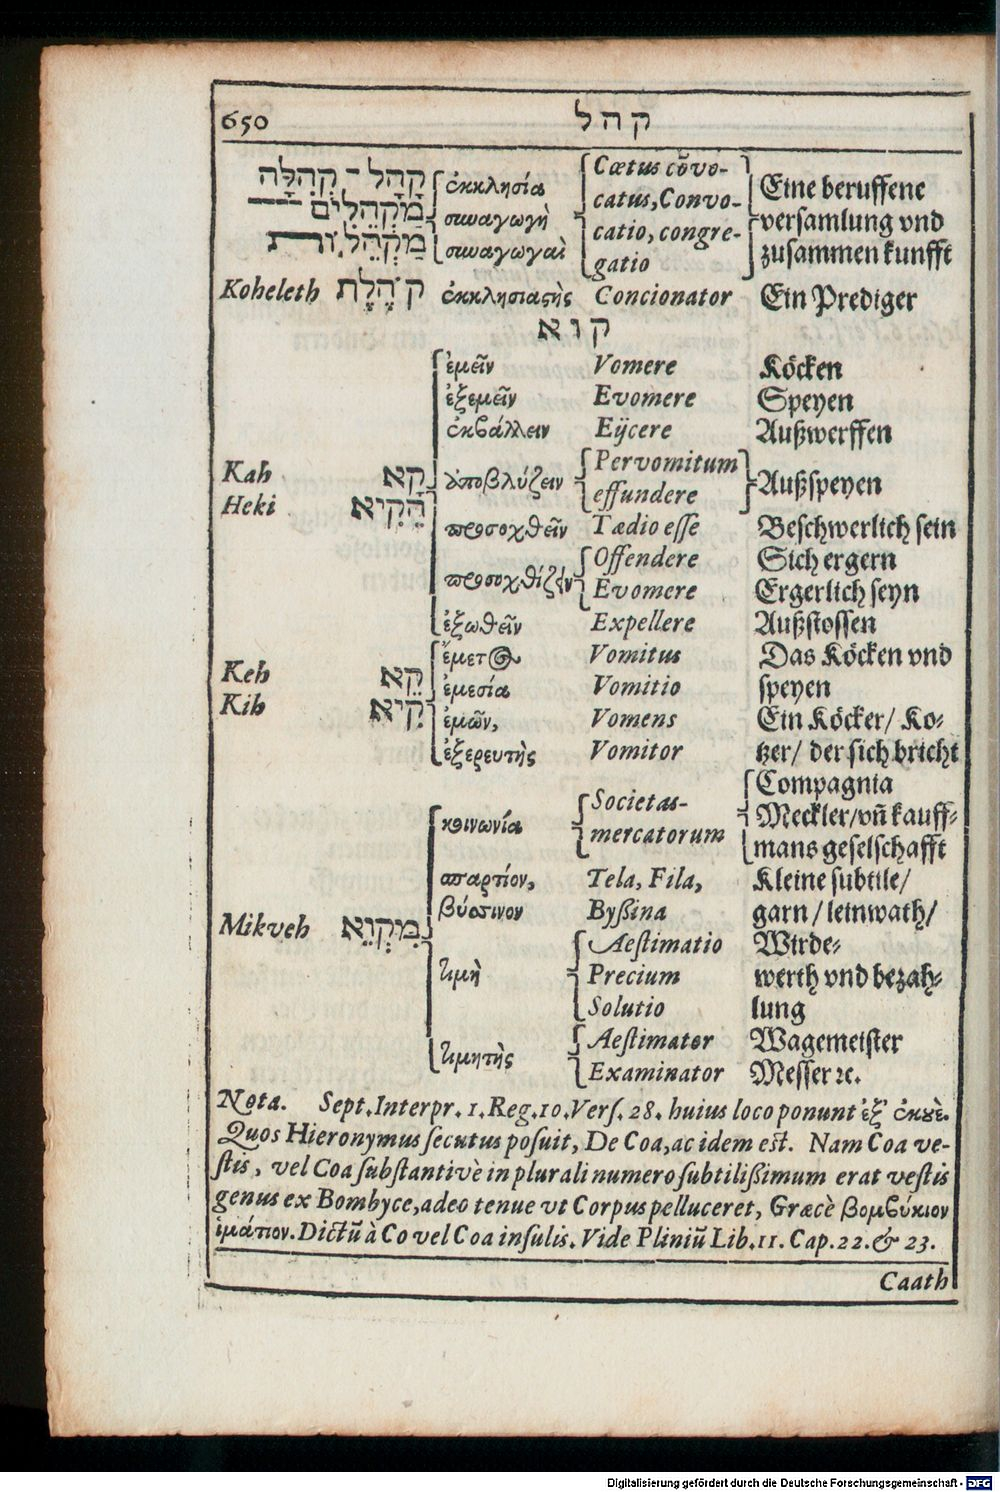 650 קהל
קָהָל - קְהִלָּה ἐκκλησία Cœtus cōvo- Eine beruffene
מַקְהֵלִים συναγωγὴ catus, Convo- versamlung vnd
מַקְהֵל ות συναγωγαὶ catio, congre- zusammen kunfft
gatio
Koheleth קֹהֶלֶת ἐκκλησιαστὴς Concionator Ein Prediger
קוא
ἐμεῖν Vomere Köcken
ἐξεμεῖν Evomere Speyen
ἐκβάλλειν Eijcere Außwerffen
Kah קָא ἀποβλύζειν Pervomitum Außspeyen
Heki הֵקִיא effundere
προσοχθεῖν Tædio esse Beschwerlich sein
προσοχθίζειν Offendere Sich ergern
Evomere Ergerlich seyn
ἐξωθεῖν Expellere Außstossen
ἔμετος Vomitus Das Köcken vnd
Keh קֵא ἐμεσία Vomitio speyen
Kih קִיא ἐμῶν, Vomens Ein Köcker/ Ko-
ἐξερευτὴς Vomitor tzer/ der sich bricht
Compagnia
κοινωνία Societas- Meckler/ vñ kauff-
mercatorum mans geselschafft
σπαρτίον, Tela, Fila, Kleine subtile/
βύσσινον Byßina garn/ leinwath/
Mikveh מִקְוֵא τιμὴ Aestimatio Wirde-
Precium werth vnd bezah-
Solutio lung
τιμητὴς Aestimator Wagemeister
Examinator Messer ꝛc.
Nota. Sept. Interpr. 1. Reg. 10. Vers. 28. huius loco ponunt ἐξ ἐκουὲ.
Quos Hieronymus secutus posuit, De Coa, ac idem est. Nam Coa ve-
stis, vel Coa substantivè in plurali numero subtilißimum erat vestis
genus ex Bombyce, adeo tenue vt Corpus pelluceret, Græcè βομβύκιον
ἱμάτιον. Dictū à Co vel Coa insulis. Vide Pliniū Lib. 11. Cap. 22. & 23.
Caath
Digitalisierung gefördert durch die Deutsche Forschungsgemeinschaft - DFG